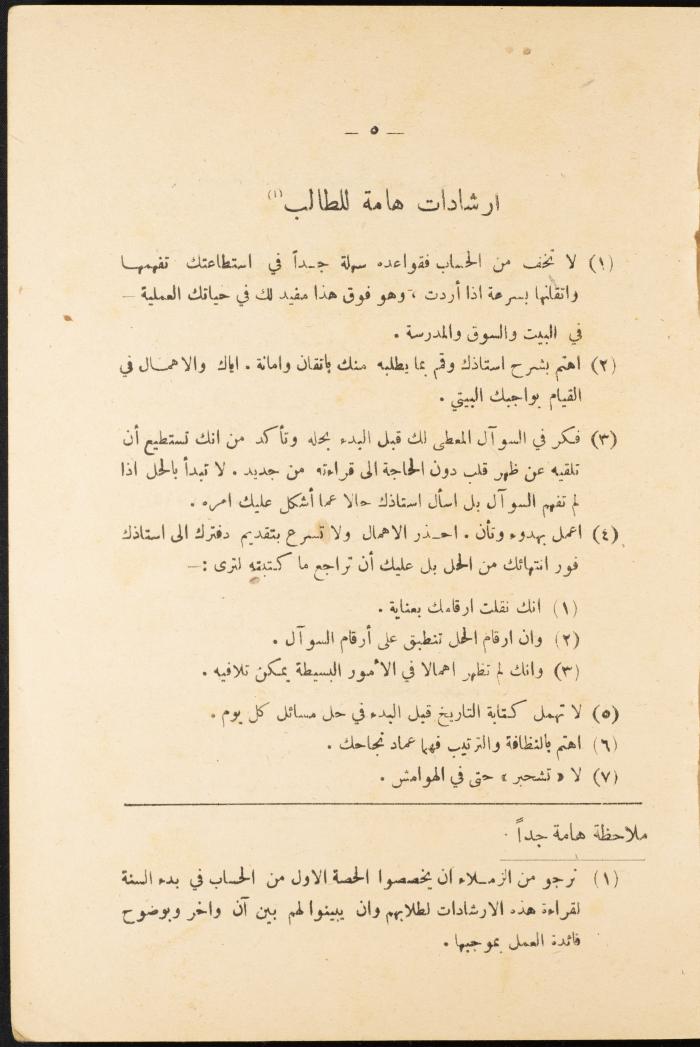 — ٥ —
ارشادات هامة للطالب (١)
(١) لا تخف من الحساب فقواعده سهلة جـداً في استطاعتك تفهمهـا
واتقانها بسرعة اذا أردت ، وهو فوق هذا مفيد لك في حياتك العملية —
في البيت والسوق والمدرسة .
(٢) اهتم بشرح استاذك وقم بما يطلبه منك باتقان وامانة . اياك والاهمـال في
القيام بواجبك البيتي .
(٣) فكر في السوآل المعطى لك قبل البدء بحله وتأكد من انك تستطيع أن
تلقيه عن ظهر قلب دون الحاجة الى قراءته من جديد . لا تبدأ بالحل اذا
لم تفهم السوآل بل اسأل استاذك حالا عما أشكل عليك امره .
(٤) اعمل بهدوء وتأن . احـذر الاهمال ولا تسرع بتقديم دفترك الى استاذك
فور انتهائك من الحل بل عليك أن تراجع ما كتبته لترى :—
(١) انك نقلت ارقامك بعناية .
(٢) وان ارقام الحل تنطبق على أرقام السوآل .
(٣) وانك لم تظهر اهمالا في الأمور البسيطة يمكن تلافيه .
(٥) لا تهمل كتابة التاريخ قبل البدء في حل مسائل كل يوم .
(٦) اهتم بالنظافة والترتيب فهما عماد نجاحك .
(٧) لا « تشحبر » حتى في الهوامش .
ملاحظة هامة جداً .
(١) نرجو من الزمـلاء ان يخصصوا الحصة الاولى من الحساب في بدء السنة
لقراءة هذه الارشادات لطلابهم وان يبينوا لهم بين آن واخر وبوضوح
فائدة العمل بموجبها .